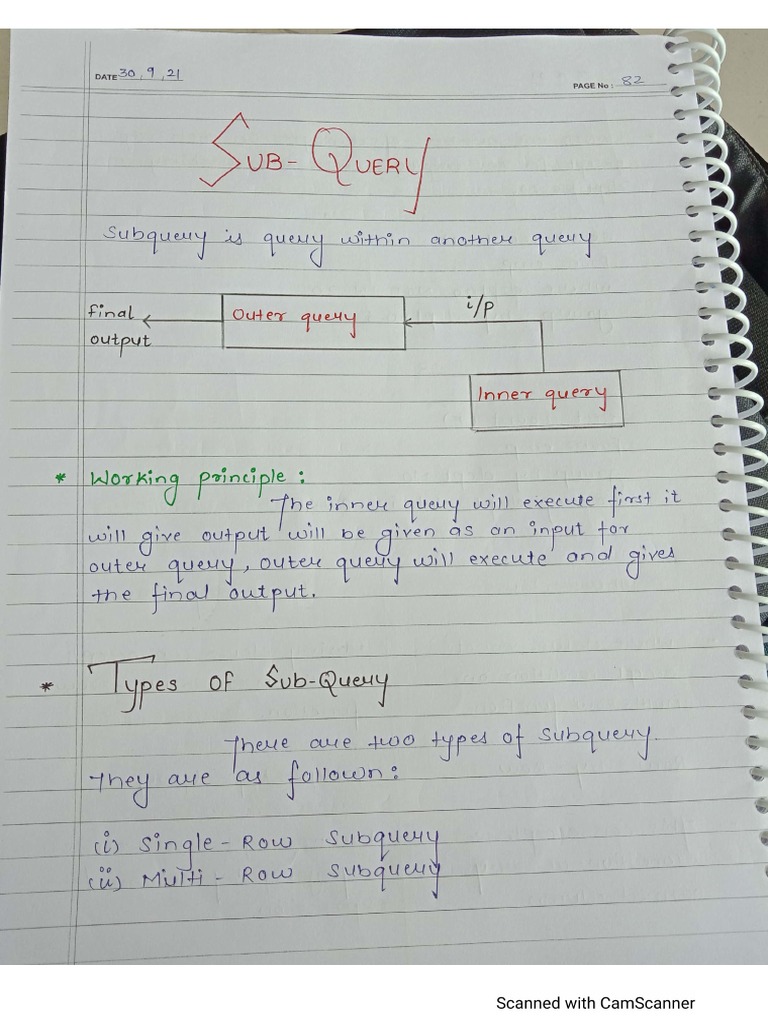 DATE 30, 9, 21
PAGE No: 82
SUB-QUERY
Subquery is query within another query
final
output
Outer query
i/p
Inner query
* Working principle:
The inner query will execute first it
will give output will be given as an input for
outer query, outer query will execute and gives
the final output.
* Types of Sub-Query
There are two types of subquery.
They are as follown:
(i) Single-Row Subquery
(ii) Multi-Row Subquery
Scanned with CamScanner